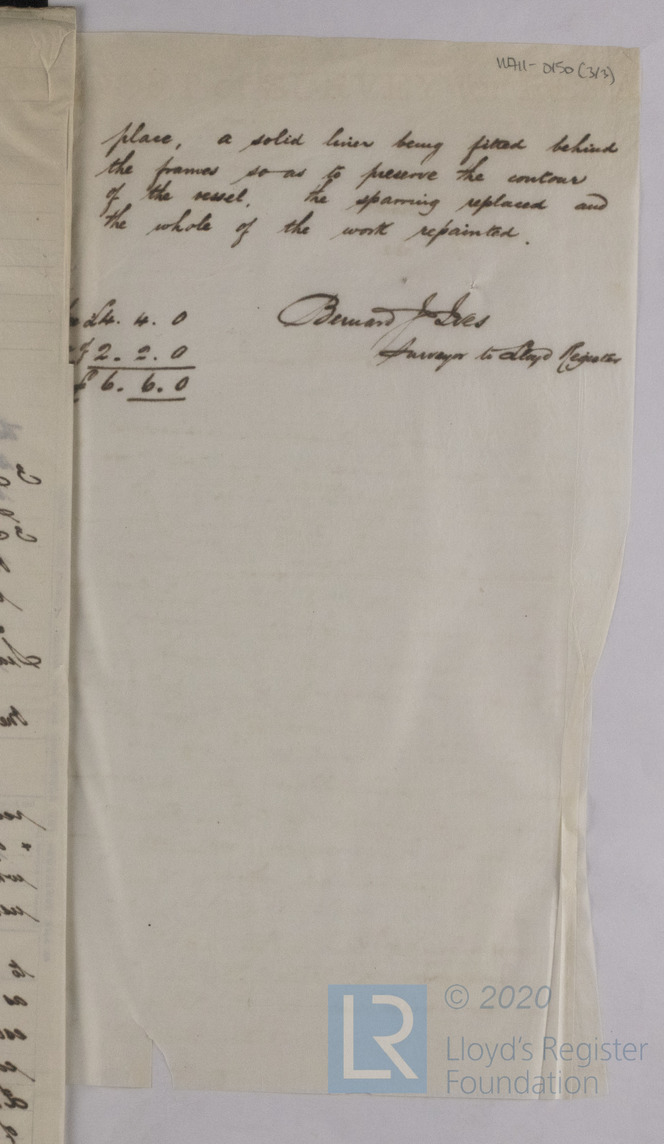 WAH-0150 (3/3)
place, a solid liner being fitted behind
the frames so as to preserve the contour
of the vessel. the sparring replaced and
the whole of the work repainted.
£4. 4. 0
2. 2. 0
£6. 6. 0
Bernard J Ives
Surveyor to Lloyd Register
LR
© 2020
Lloyd's Register
Foundation